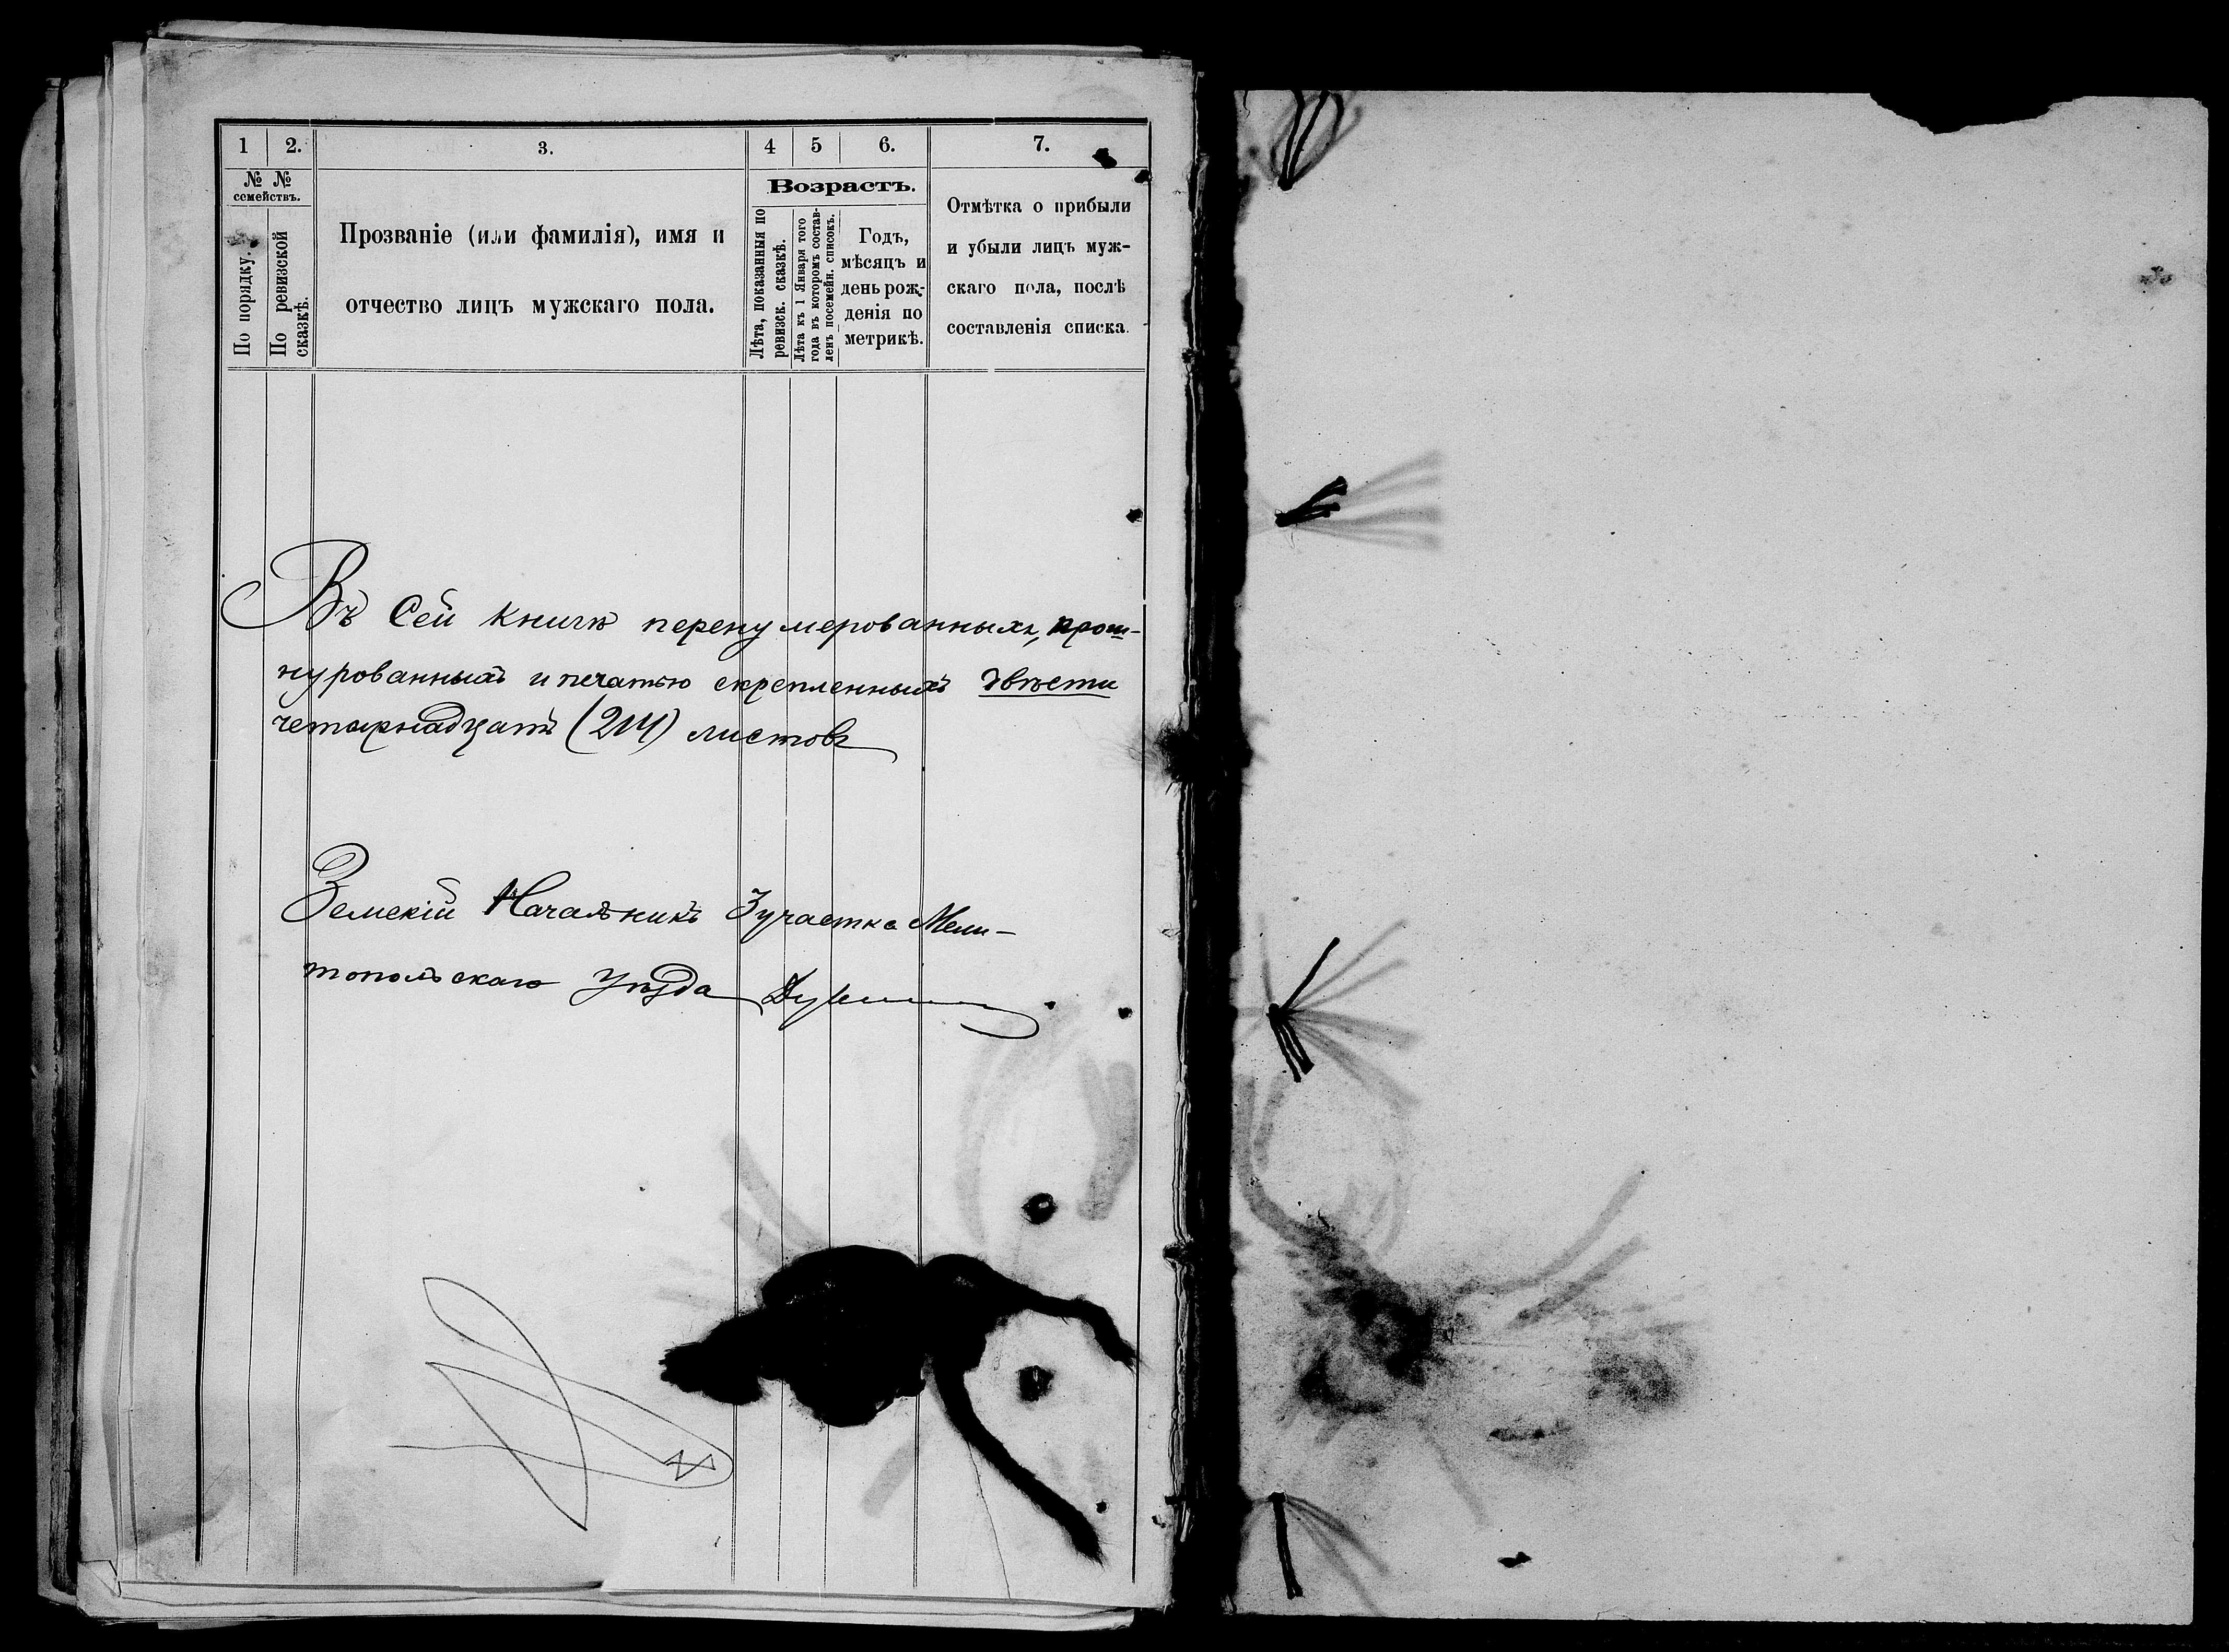 1 2. 3. 4 5 6. 7.
№ № семействъ.
По порядку.
По ревизской сказкѣ.
Прозваніе (или фамилія), имя и
отчество лицъ мужскаго пола.
Возрастъ.
Лѣта, показанныя по ревизск. сказкѣ.
Лѣта къ 1 Января того года въ которомъ составленъ посемейн. списокъ.
Годъ,
мѣсяцъ и
день рож-
денія по
метрикѣ.
Отмѣтка о прибыли
и убыли лицъ муж-
скаго пола, послѣ
составленія списка.
Въ Сей книгѣ перенумерованныхъ, прош-
нурованныхъ и печатью скрепленныхъ двѣсти
четырнадцать (214) листовъ
Земскій Начальникъ 3 участка Мели-
топольскаго Уѣзда